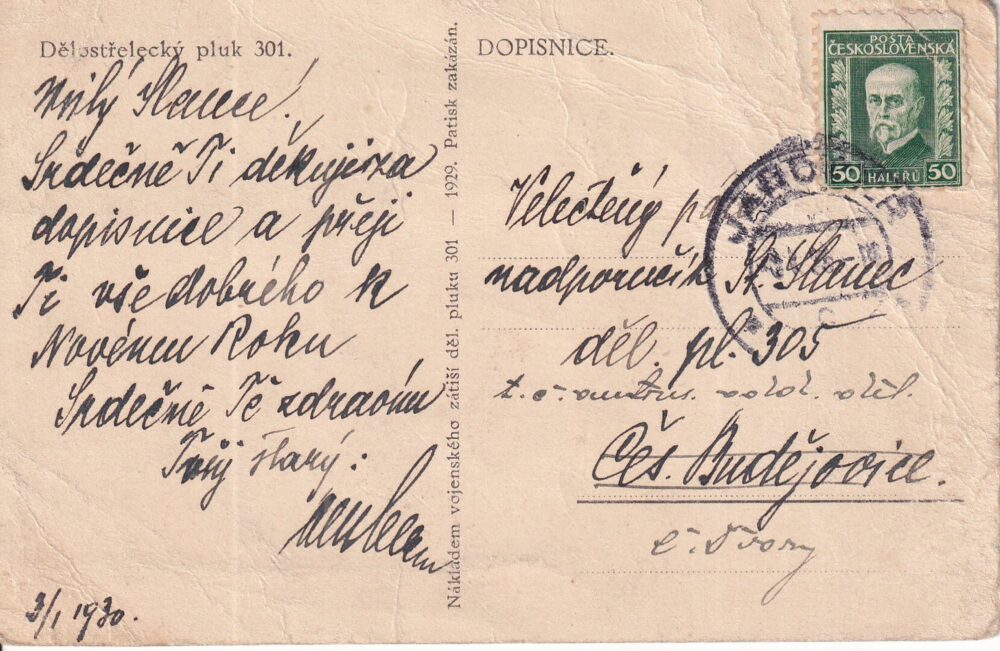 Dělostřelecký pluk 301.
Milý Slance!
Srdečně Ti děkuji za
dopisnice a přeji
Ti vše dobrého k
Novému Roku
Srdečně Tě zdravím
Tvůj starý:
3/1 1930.
Nákladem vojenského zátiší děl. pluku 301 — 1929. Patisk zakázán.
DOPISNICE.
POSTA
ČESKOSLOVENSKÁ
50 HALÉŘŮ 50
Velectěný
nadporučík St. Slanec
děl. pl. 305
t. č.
Čes. Budějovice.
č. Dvory